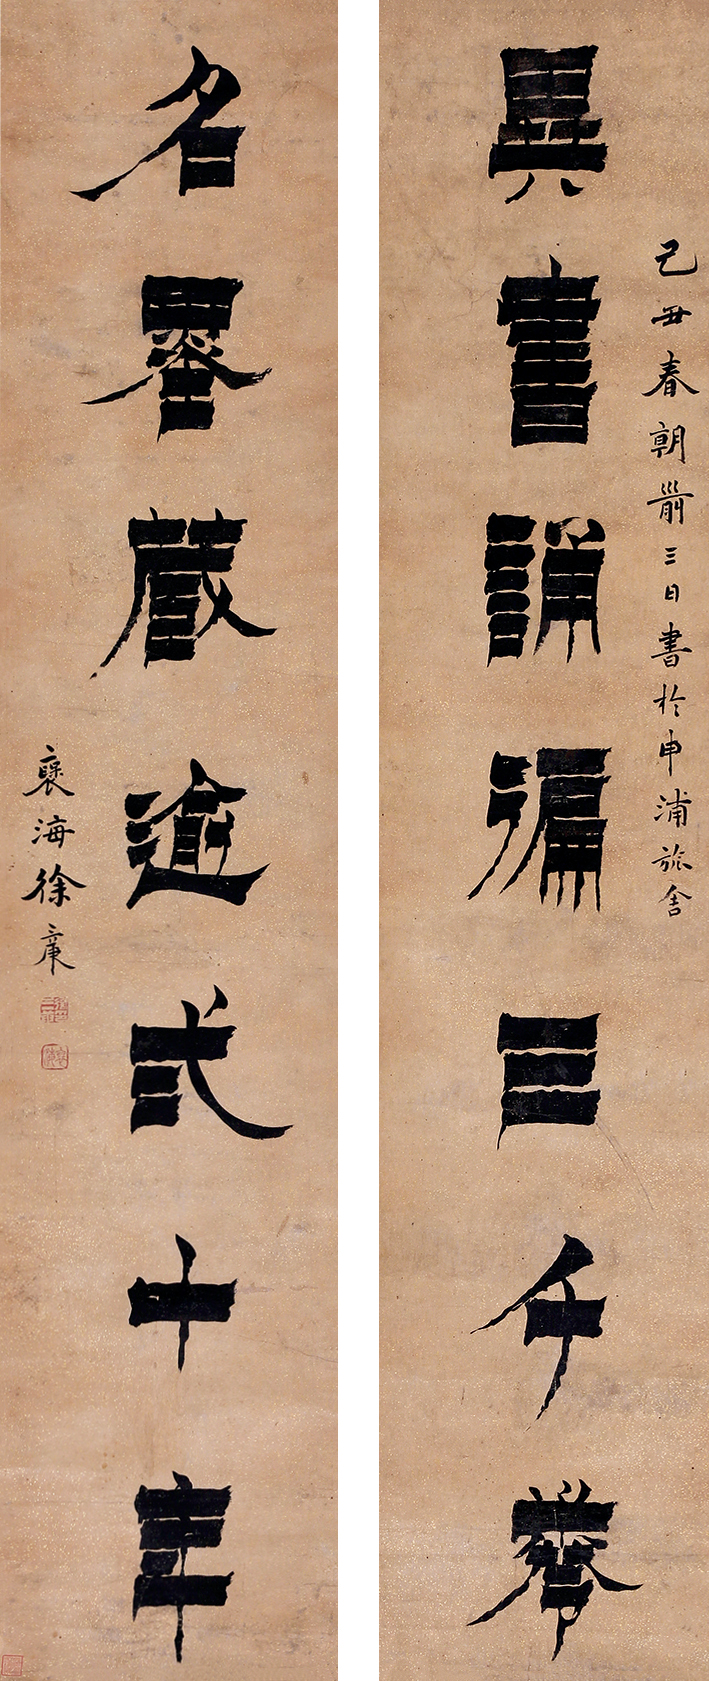 異書誦徧三千卷
己丑春朝前三日書於申浦旅舍
名藏逾弍十年
褎海徐庚